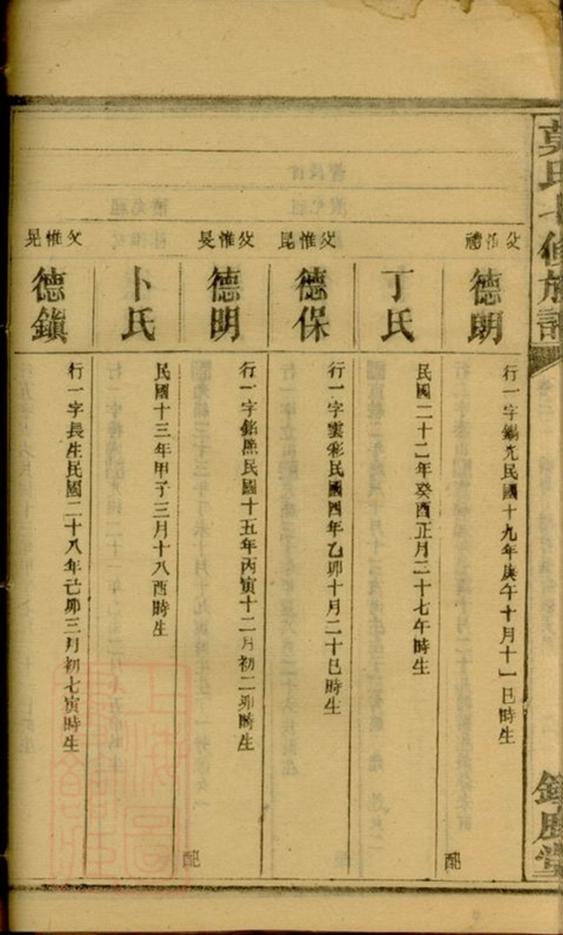 莫氏七修族譜
父惟禮
德明
行一字錫光民國十九年庚午十月十一巳時生
配
丁氏
民國二十二年癸酉正月二十七午時生
父惟昆
德保
行一字雲彩民國四年乙卯十月二十巳時生
父惟旻
德明
行一字銘熙民國十五年丙寅十二月初二卯時生
配
卜氏
民國十三年甲子三月十八酉時生
父惟晃
德鎮
行一字長生民國二十八年己卯三月初七寅時生